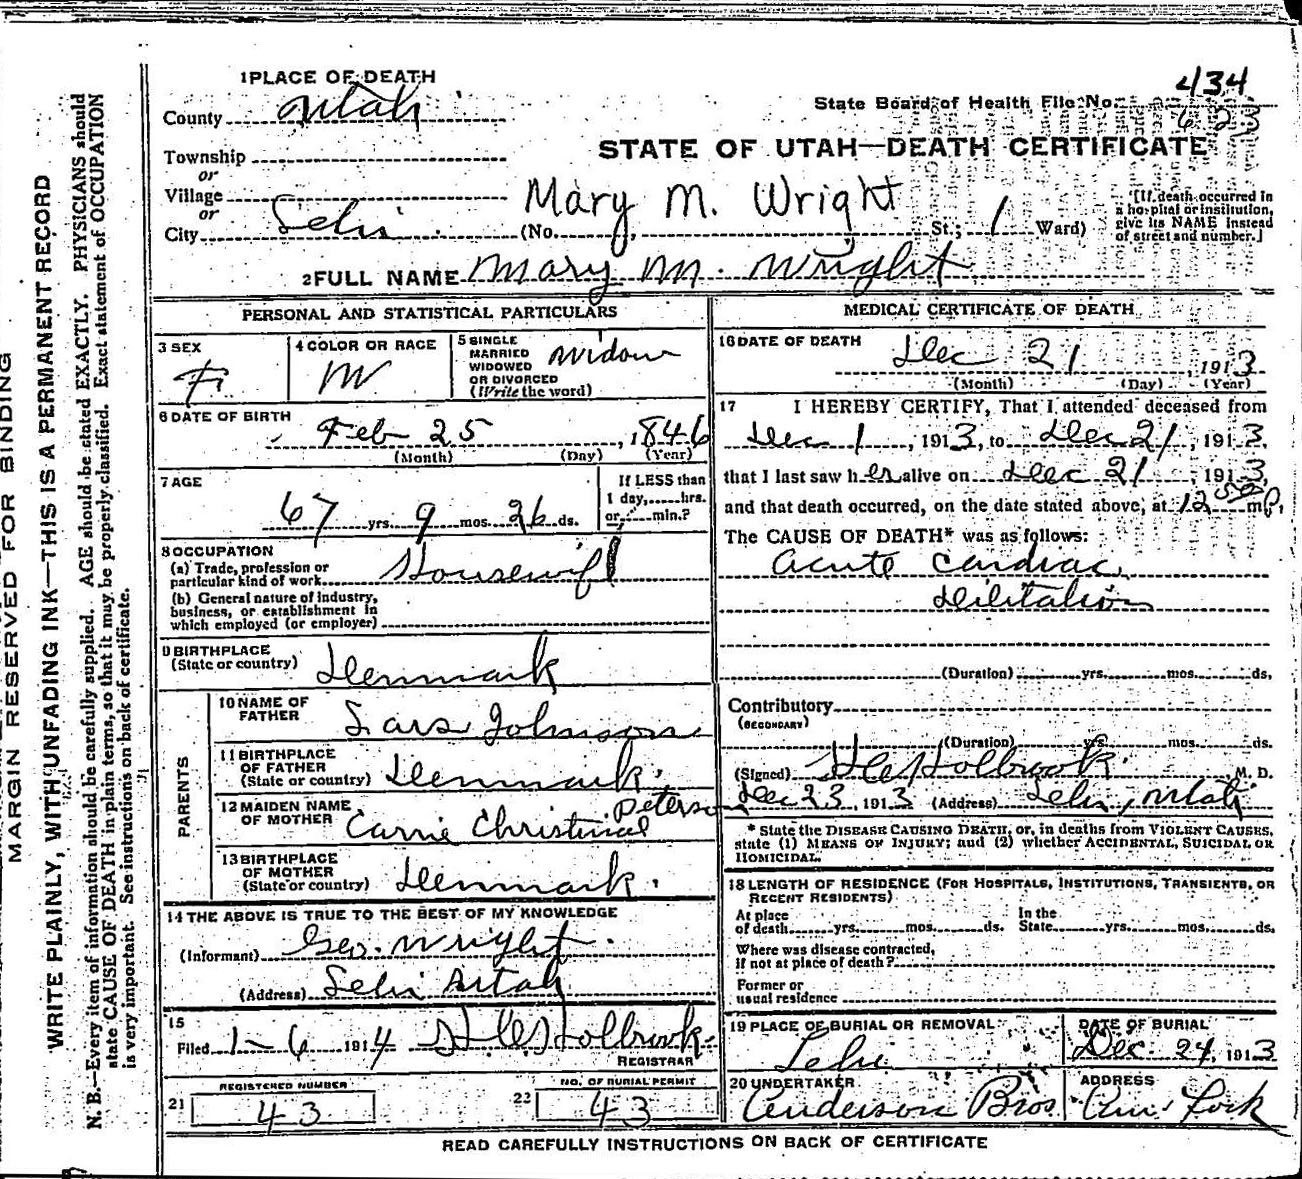 MARGIN RESERVED FOR BINDING
WRITE PLAINLY, WITH UNFADING INK—THIS IS A PERMANENT RECORD
N. B.—Every item of information should be carefully supplied. AGE should be stated EXACTLY. PHYSICIANS should
state CAUSE OF DEATH in plain terms, so that it may be properly classified. Exact statement of OCCUPATION
is very important. See instructions on back of certificate.
1 PLACE OF DEATH
County Utah
Township
or
Village
or
City Lehi
434
State Board of Health File No.
623
STATE OF UTAH—DEATH CERTIFICATE
Mary M. Wright
(No. St.; 1 Ward)
[If death occurred in
a hospital or institution,
give its NAME instead
of street and number.]
2 FULL NAME Mary M. Wright
PERSONAL AND STATISTICAL PARTICULARS
3 SEX
F
4 COLOR OR RACE
W
5 SINGLE
MARRIED
WIDOWED
OR DIVORCED
(Write the word)
Widow
6 DATE OF BIRTH
Feb 25, 1846
(Month) (Day) (Year)
7 AGE
67 yrs. 9 mos. 26 ds.
If LESS than
1 day,......hrs.
or......min.?
8 OCCUPATION
(a) Trade, profession or
particular kind of work Housewife
(b) General nature of industry,
business, or establishment in
which employed (or employer)
9 BIRTHPLACE
(State or country) Denmark
PARENTS
10 NAME OF
FATHER Lars Johnson
11 BIRTHPLACE
OF FATHER
(State or country) Denmark.
12 MAIDEN NAME
OF MOTHER Carrie Christina Peterson
13 BIRTHPLACE
OF MOTHER
(State or country) Denmark.
14 THE ABOVE IS TRUE TO THE BEST OF MY KNOWLEDGE
(Informant) Geo. Wright.
(Address) Lehi Utah
15
Filed 1-6 1914 H. C. Holbrook
REGISTRAR
REGISTERED NUMBER
21 43
NO. OF BURIAL PERMIT
22 43
MEDICAL CERTIFICATE OF DEATH
16 DATE OF DEATH
Dec 21, 1913
(Month) (Day) (Year)
17 I HEREBY CERTIFY, That I attended deceased from
Dec 1, 1913, to Dec 21, 1913,
that I last saw her alive on Dec 21, 1913,
and that death occurred, on the date stated above, at 12 50 P m.
The CAUSE OF DEATH* was as follows:
Acute Cardiac
Dilitation
(Duration) yrs. mos. ds.
Contributory
(SECONDARY)
(Duration) yrs. mos. ds.
(Signed) H C Holbrook. M. D.
Dec 23, 1913 (Address) Lehi, Utah
* State the DISEASE CAUSING DEATH, or, in deaths from VIOLENT CAUSES,
state (1) MEANS OF INJURY; and (2) whether ACCIDENTAL, SUICIDAL OR
HOMICIDAL.
18 LENGTH OF RESIDENCE (FOR HOSPITALS, INSTITUTIONS, TRANSIENTS, OR
RECENT RESIDENTS)
At place
of death......yrs......mos......ds.
In the
State......yrs......mos......ds.
Where was disease contracted,
if not at place of death?
Former or
usual residence
19 PLACE OF BURIAL OR REMOVAL
Lehi
DATE OF BURIAL
Dec 24, 1913
20 UNDERTAKER
Anderson Bros
ADDRESS
Am. Fork
READ CAREFULLY INSTRUCTIONS ON BACK OF CERTIFICATE